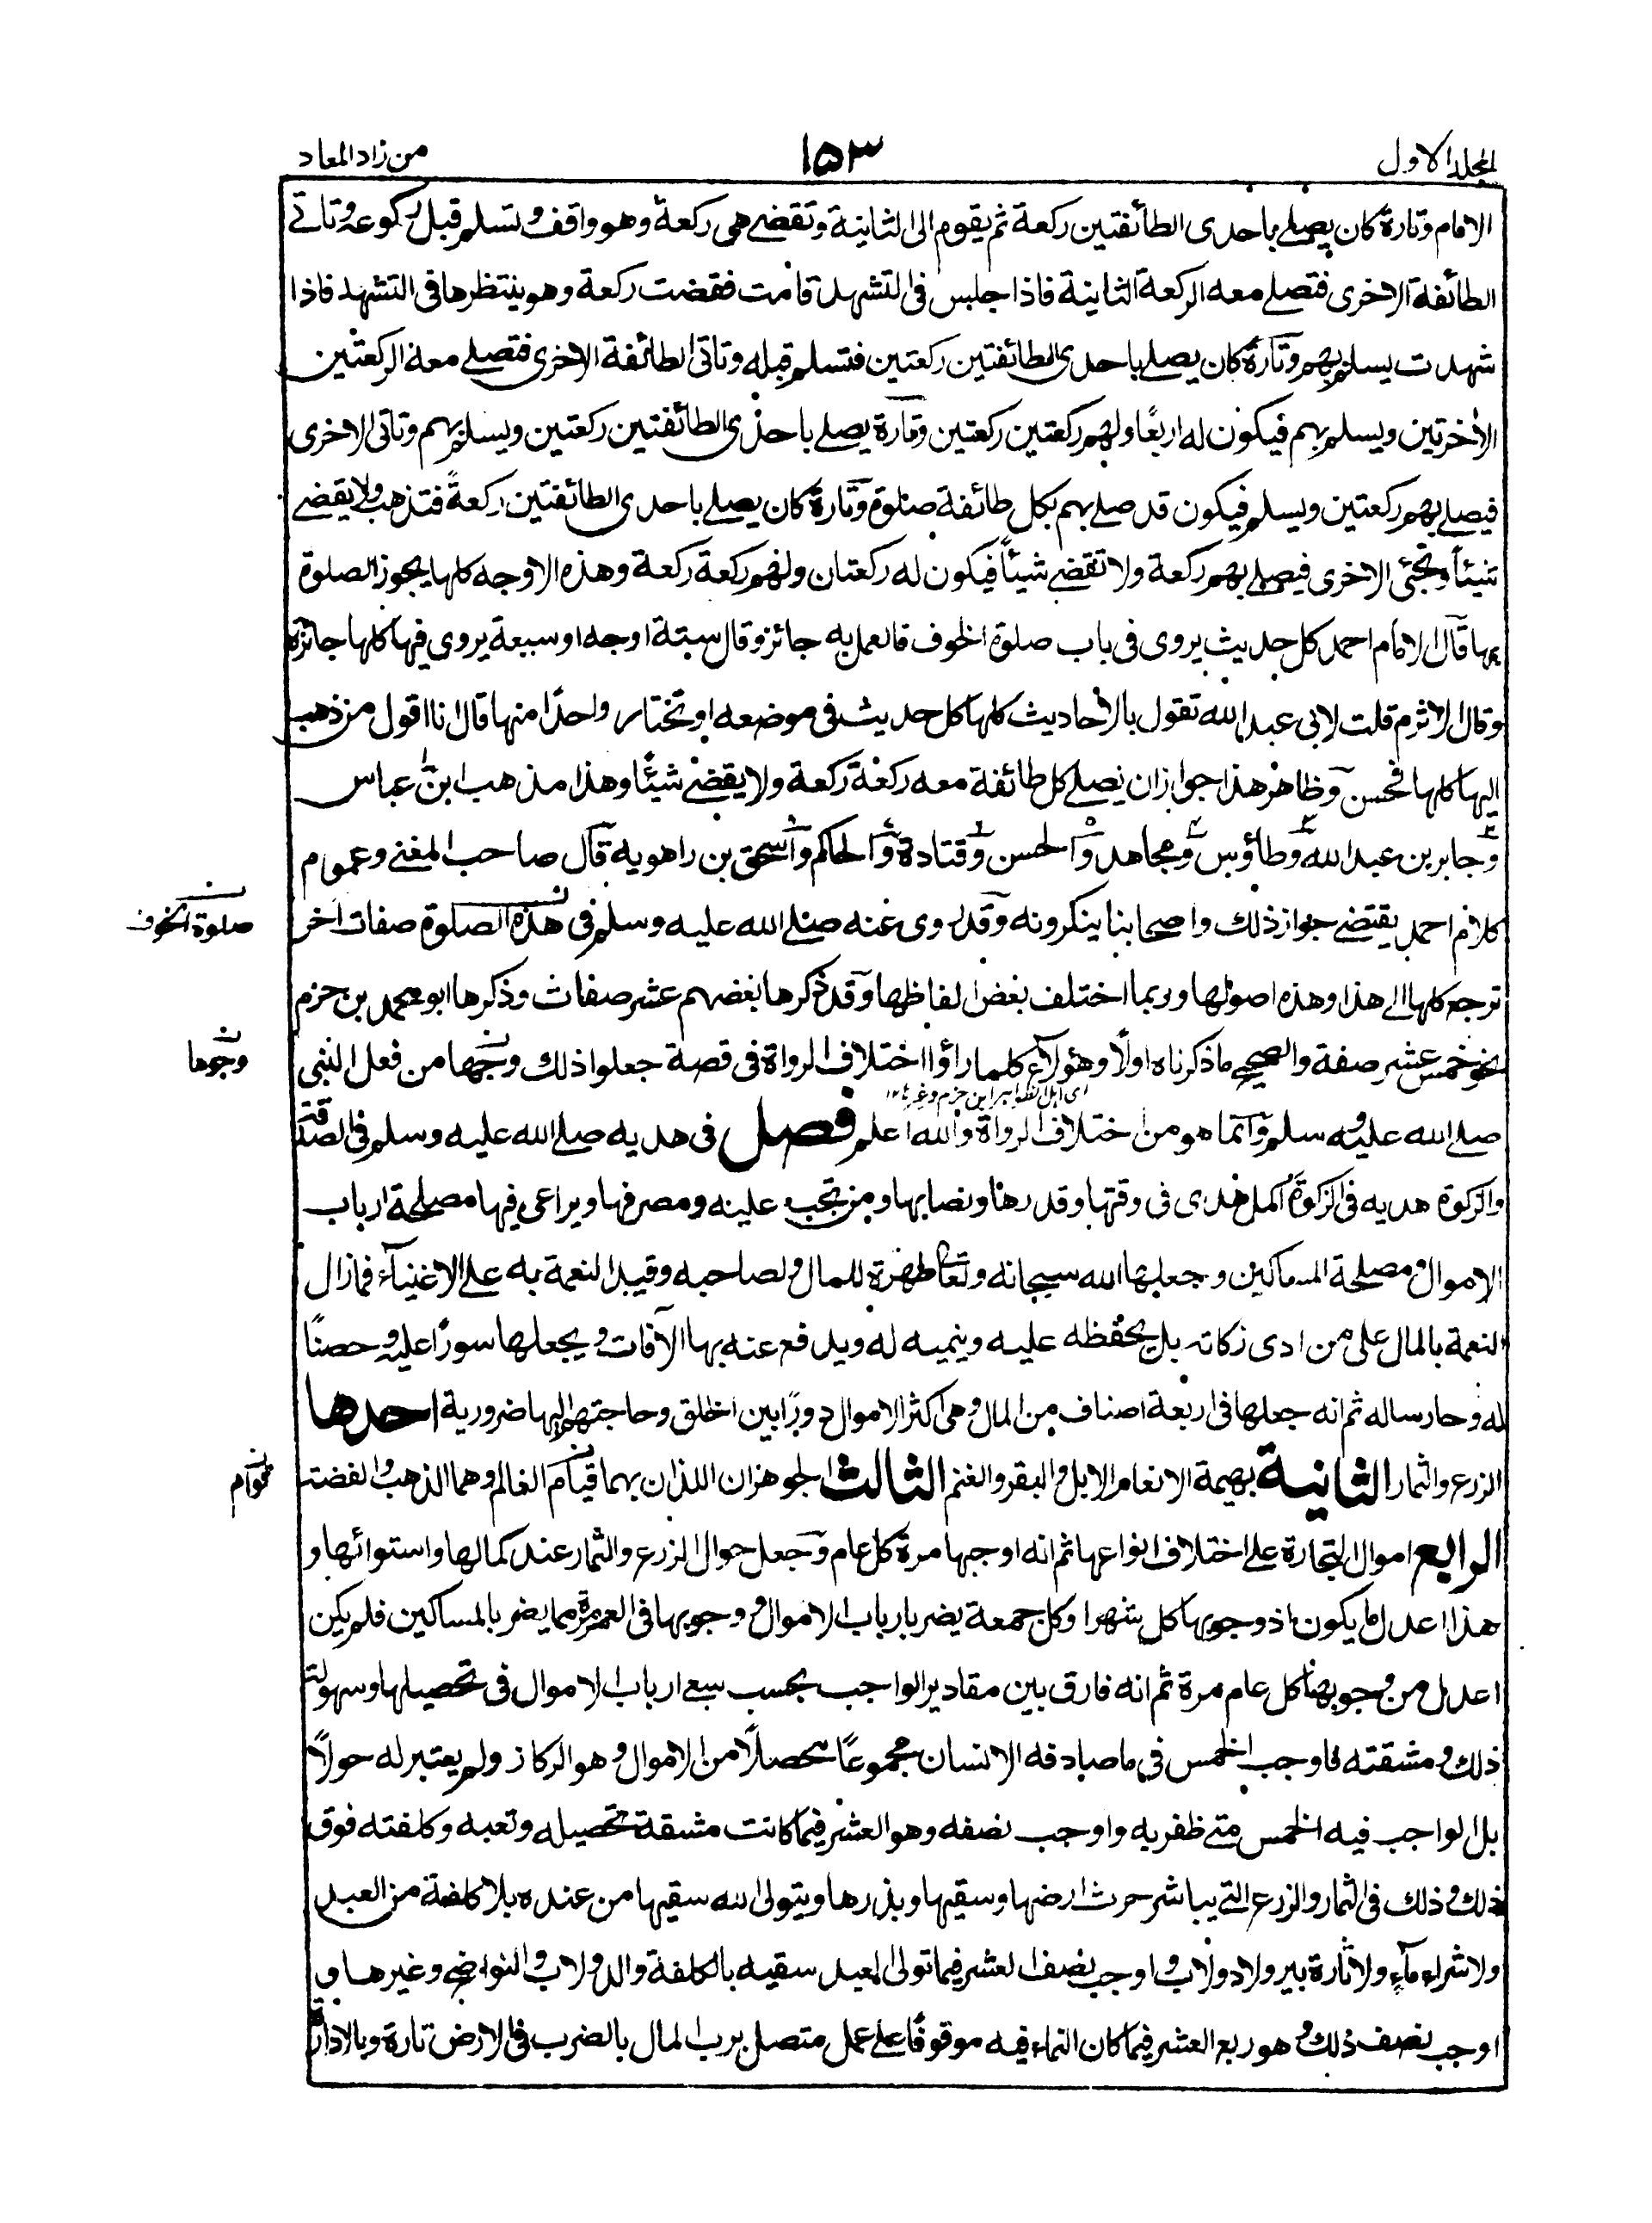 المجلد الاول
١٥٣
من زاد المعاد
الامام وتارة كان يصلے باحدى الطائفتين ركعة ثم يقوم الى الثانية وتقضے هى ركعة وهو واقف وتسلم قبل ركوعه وتاتے
الطائفة الاخرى فتصلے معه الركعة الثانية فاذا جلس فى التشهد قامت فقضت ركعة وهو ينتظرها فى التشهد فاذا
تشهدت يسلم بهم وتارة كان يصلے باحدى الطائفتين ركعتين فتسلم قبله وتاتى الطائفة الاخرى فتصلے معه الركعتين
الاخرتين ويسلم بهم فيكون له اربعًا ولهم ركعتين ركعتين وتارة يصلے باحدى الطائفتين ركعتين ويسلم بهم وتاتى الاخرى
فيصلے بهم ركعتين ويسلم فيكون قد صلے بهم بكل طائفة صلوة وتارة كان يصلے باحدى الطائفتين ركعةً فتذهب ولا يقضے
شيئاً وتجئى الاخرى فيصلے بهم ركعة ولا تقضے شيئاً فيكون له ركعتان ولهم ركعة ركعة وهذه الاوجه كلها يجوز الصلوة
بها قال الامام احمد كل حديث يروى فى باب صلوة الخوف فالعمل به جائز وقال ستة اوجه او سبعة يروى فيها كلها جائزة
وقال الاثرم قلت لابى عبد الله تقول بالاحاديث كلها كل حديث فى موضعه او تختار واحدًا منها قال انا اقول من ذهب
اليها كلها فحسن وظاهر هذا جواز ان يصلے كل طائفة معه ركعة ركعة ولا يقضے شيئًا وهذا مذهب ابن عباس
وجابر بن عبد الله وطاؤس ومجاهد والحسن وقتادة والحاكم واسحق بن راهويه قال صاحب المغنے وعموم
كلام احمد يقتضے جواز ذلك واصحابنا ينكرونه وقد روى عنه صلے الله عليه وسلم فى هذه الصلوة صفات اخر
صلوة الخوف
ترجع كلها الے هذا وهذه اصولها وربما اختلف بعض الفاظها وقد ذكرها بعضهم عشر صفات وذكرها ابو محمد بن حزم
نحو خمس عشر صفة والصحيح ما ذكرناه اولاً وهؤلاء كلما راؤا اختلاف الرواة فى قصة جعلوا ذلك وجها من فعل النبي
وجوها
صلے الله عليه وسلم وانما هو من اختلاف الرواة والله اعلم فصل فى هديه صلے الله عليه وسلم فى الصدقة
والزكوة هديه فى الزكوة اكمل هدى فى وقتها وقدرها ونصابها ومن تجب عليه ومصرفها ويراعى فيها مصلحة ارباب
الاموال ومصلحة المساكين وجعلها الله سبحانه وتعالى طهرة للمال ولصاحبه وقيد النعمة به على الاغنياء فمازال
النعمة بالمال على من ادى زكاته بل يحفظه عليه وينميه له ويدفع عنه بها الآفات ويجعلها سورًا عليه وحصنًا
له وحارسا له ثم انه جعلها فى اربعة اصناف من المال وهى اكثر الاموال دورًا بين الخلق وحاجتهم اليها ضرورية احدها
الزرع والثمار الثانية بهيمة الانعام الابل والبقر والغنم الثالث الجوهران اللذان بهما قيام العالم وهما الذهب والفضة
قوام
الرابع اموال التجارة علے اختلاف انواعها ثم انه اوجبها مرة كل عام وجعل حوال الزرع والثمار عند كمالها واستوائها و
هذا اعدل ما يكون اذ وجوبها كل شهر او كل جمعة يضر بارباب الاموال ووجوبها فى العمر مرة مما يضر بالمساكين فلم يكن
اعدل من وجوبها كل عام مرة ثم انه فارق بين مقادير الواجب بحسب سعے ارباب الاموال فى تحصيلها وسهولة
ذلك ومشقته فاوجب الخمس فى ما صادفه الانسان مجموعًا محصلاً من الاموال وهو الركاز ولم يعتبر له حولاً
بل اوجب فيه الخمس متے ظفر به واوجب نصفه وهو العشر فيما كانت مشقة تحصيله وتعبه وكلفته فوق
ذلك وذلك فى الثمار والزرع التے يباشر حرث ارضها وسقيها وبذرها ويتولى الله سقيها من عنده بلا كلفة من العبد
ولا شراء ماء ولا اثارة بير ولا دولاب واوجب نصف العشر فيما تولى العبد سقيه بالكلفة والدولاب والنواضح وغيرها و
اوجب نصف ذلك وهو ربع العشر فيما كان النماء فيه موقوفًا على عمل متصل برب المال بالضرب فى الارض تارة وبالادارة